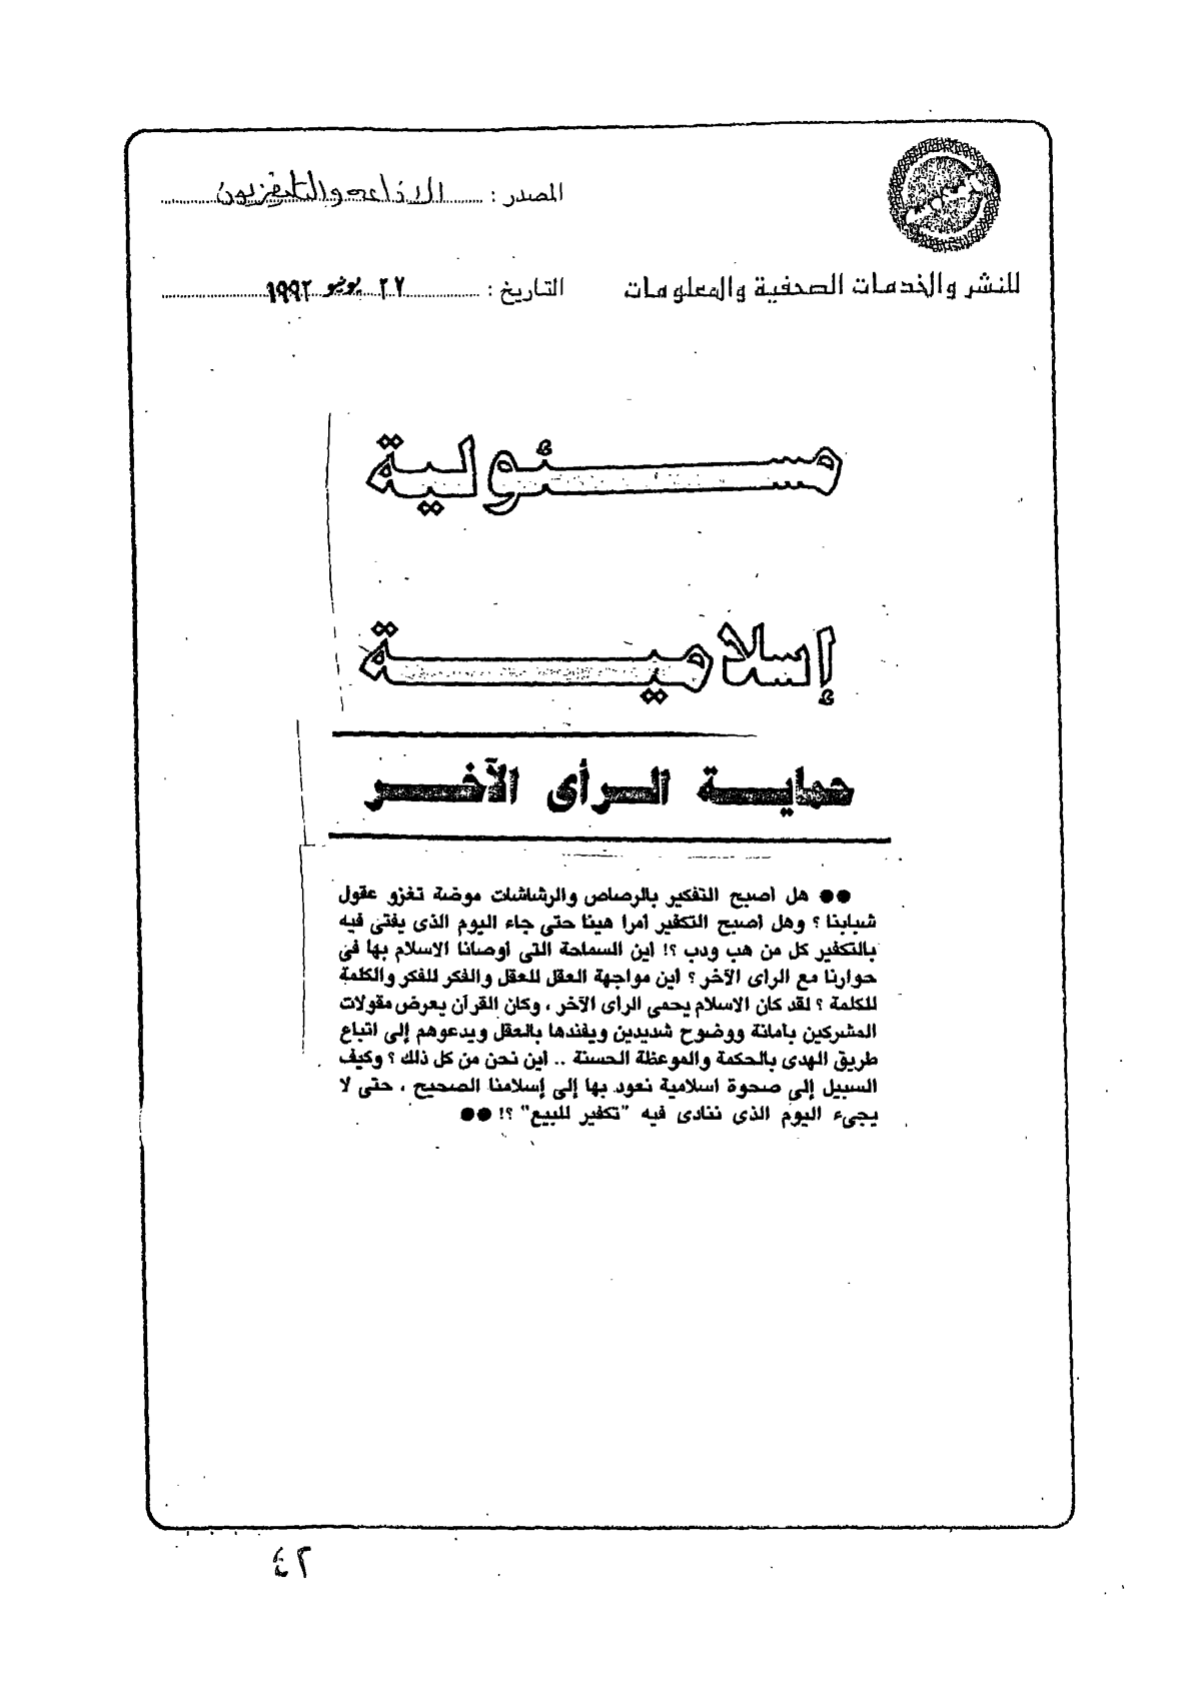 المصدر : الاذاعه والتليفزيون
للنشر والخدمات الصحفية والمعلومات
التاريخ : ٢٧ يونيو ١٩٩٢
مسئولية
إسلامية
حماية الرأى الآخر
●● هل اصبح التفكير بالرصاص والرشاشات موضة تغزو عقول
شبابنا ؟ وهل اصبح التكفير أمرا هينا حتى جاء اليوم الذى يفتى فيه
بالتكفير كل من هب ودب ؟! اين السماحة التى أوصانا الاسلام بها فى
حوارنا مع الرأى الآخر ؟ اين مواجهة العقل للعقل والفكر للفكر والكلمة
للكلمة ؟ لقد كان الاسلام يحمى الرأى الآخر ، وكان القرآن يعرض مقولات
المشركين بأمانة ووضوح شديدين ويفندها بالعقل ويدعوهم إلى اتباع
طريق الهدى بالحكمة والموعظة الحسنة .. اين نحن من كل ذلك ؟ وكيف
السبيل إلى صحوة اسلامية نعود بها إلى إسلامنا الصحيح ، حتى لا
يجىء اليوم الذى ننادى فيه "تكفير للبيع" ؟! ●●
٤٢